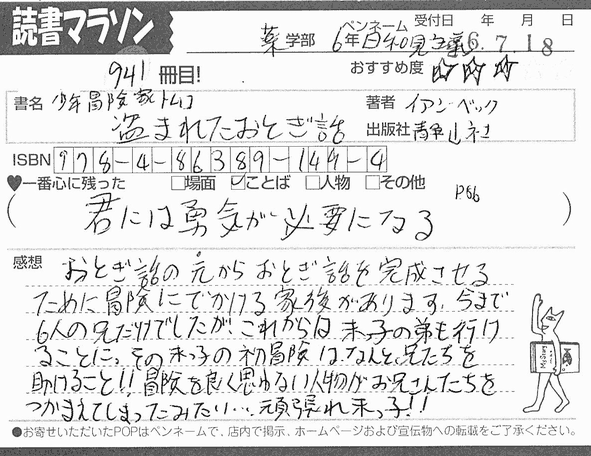 読書マラソン
ペンネーム 受付日 年 月 日
薬学部 6年 6.7.18
941冊目! おすすめ度 ☆☆☆
書名 少年冒険家トム1 著者 イアン・ベック
盗まれたおとぎ話 出版社 静山社
ISBN 978-4-86389-144-4
♥一番心に残った □場面 ☑ことば □人物 □その他
P66
(君には勇気が必要になる)
感想 おとぎ話の元からおとぎ話を完成させる
ために冒険にでかける家後があります。今まで
6人の兄だけでしたが、これからは末っ子の弟も行け
ることに。その末っ子の初冒険は、なんと、兄たちを
助けること!!冒険を良く思わない人物がお兄さんたちを
つかまえてしまったみたい…頑張れ末っ子!!
Mystery
●お寄せいただいたPOPはペンネームで、店内で掲示、ホームページおよび宣伝物への転載をご了承ください。